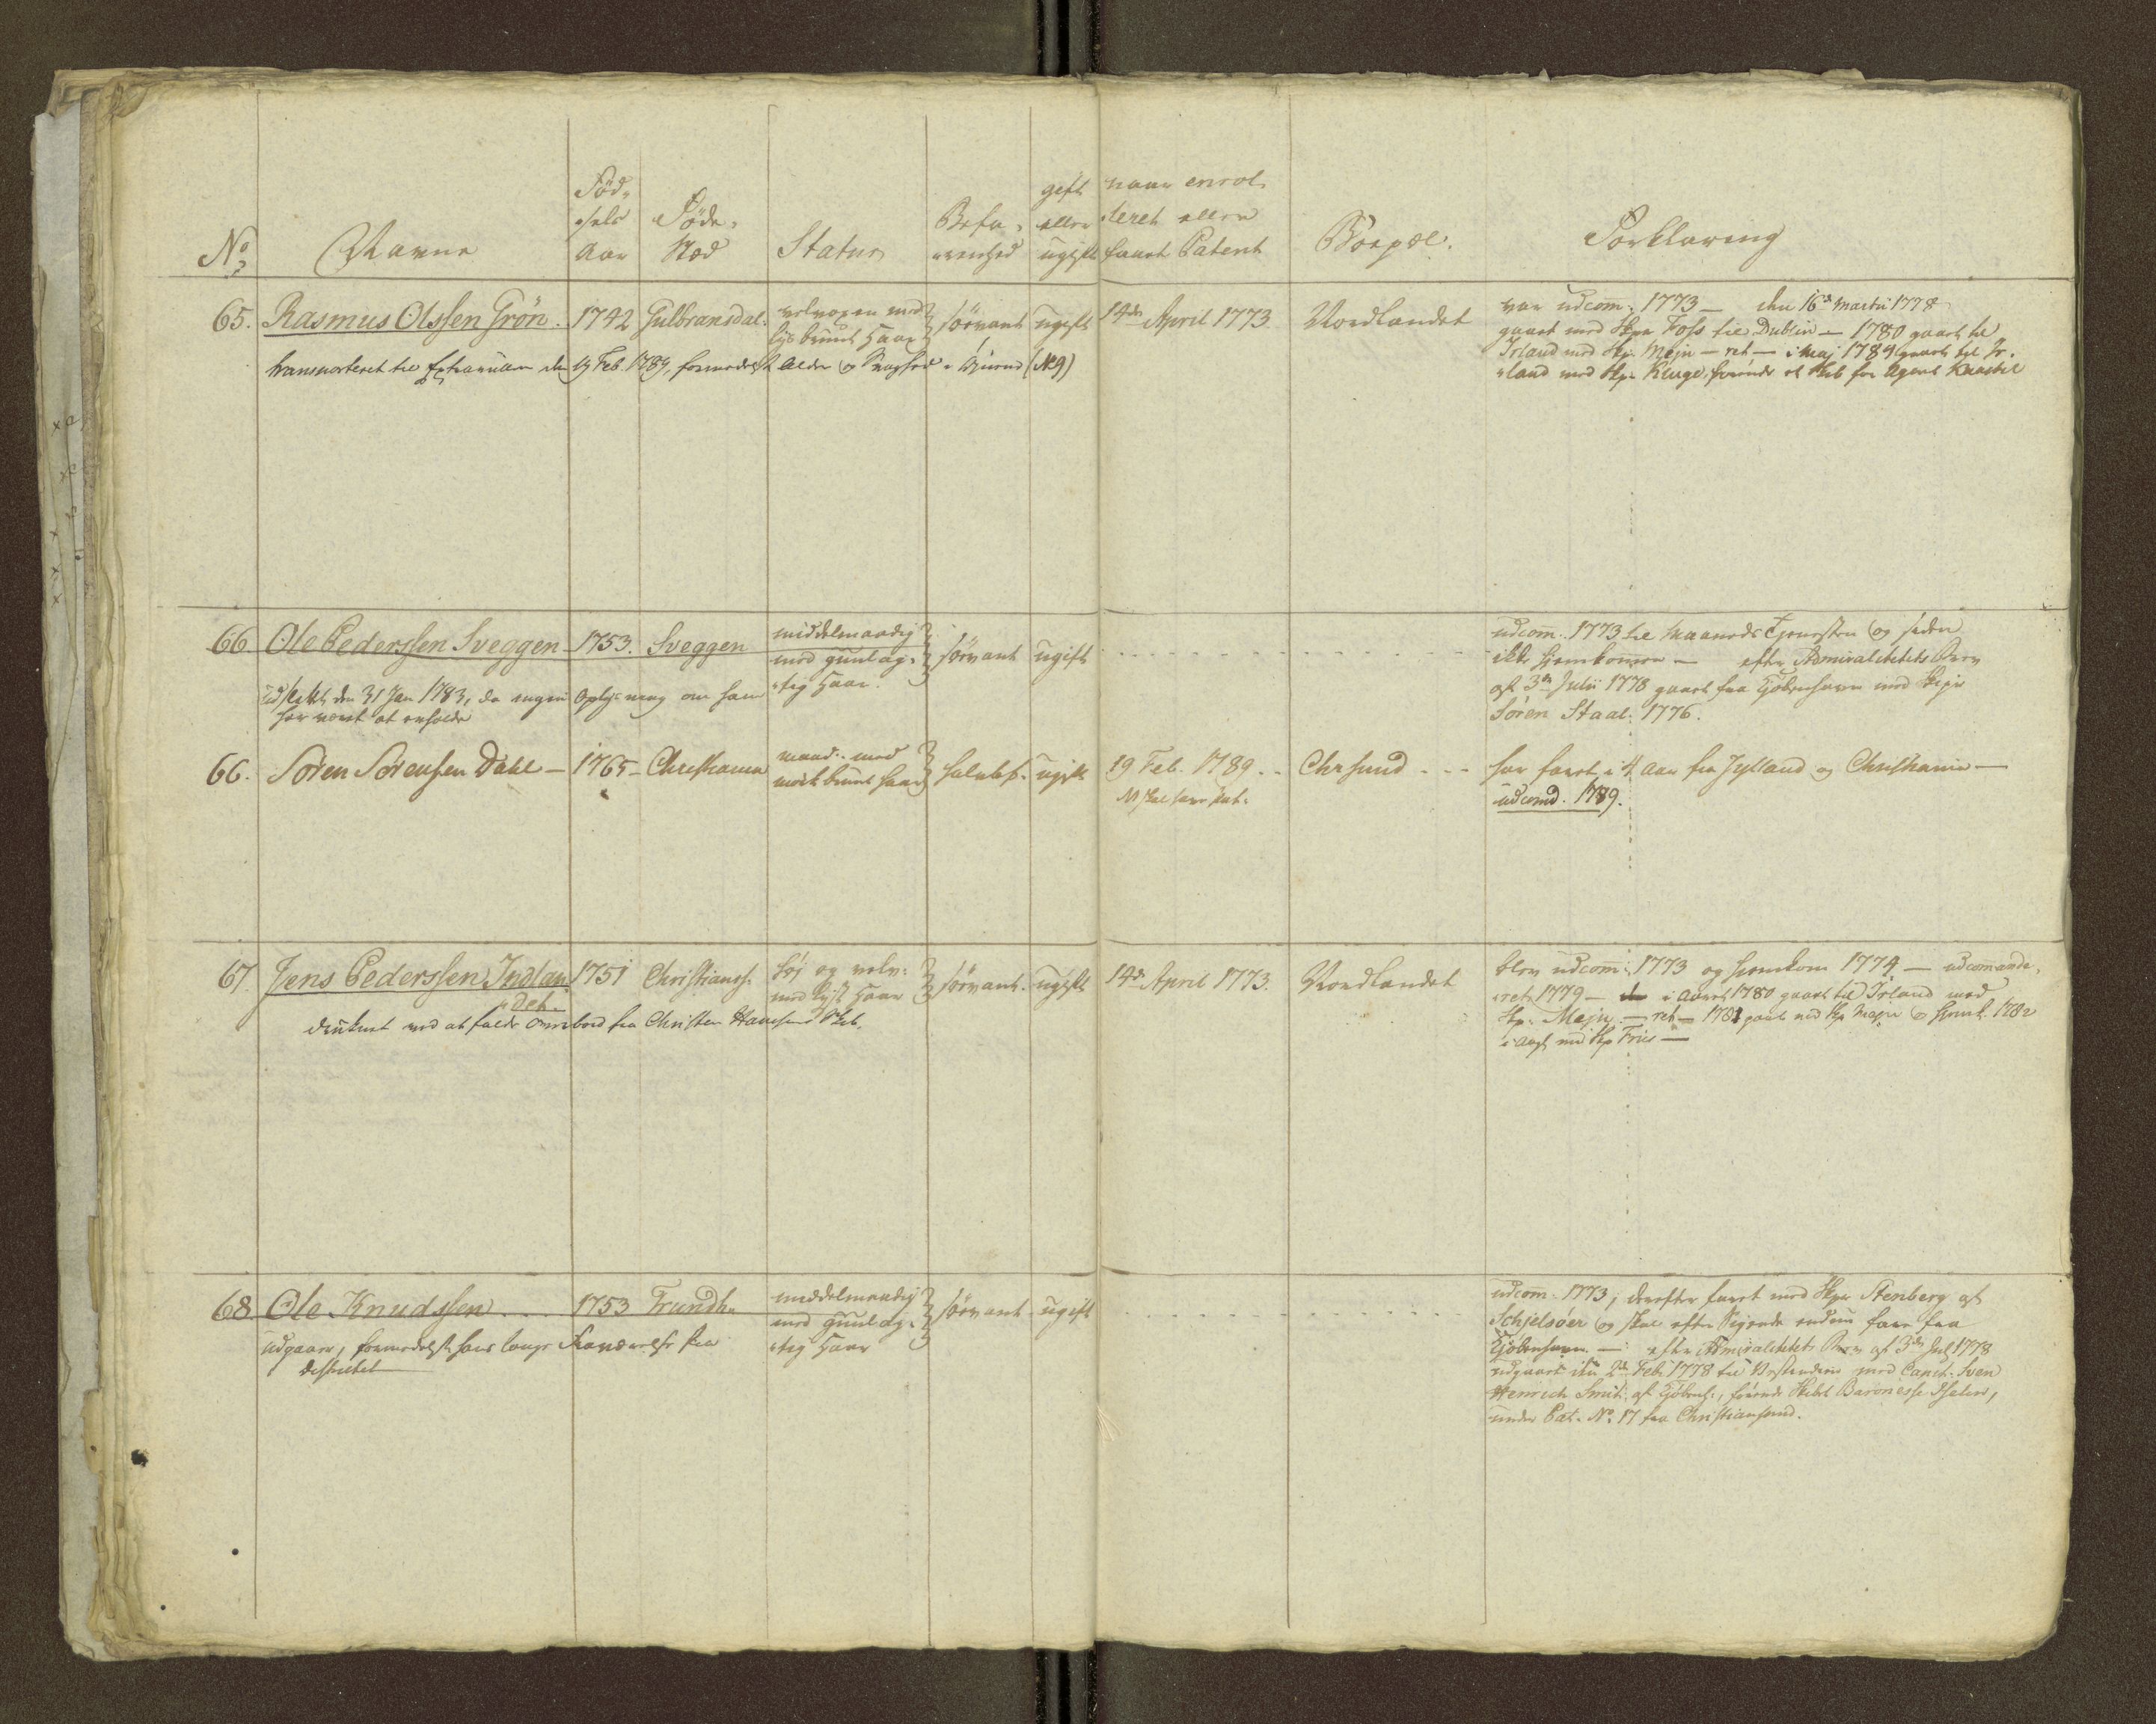 No Navne Fød- sels Aar Føde- Stæd Statur Befa- renhed gift eller ugift naar enrol- leret eller faaet Patent Boepæl. Forklaring
65. Rasmus Olssen Grön. 1742 Gulbransdal. velvoxen med lys bruunt Haar søevant ugift 14de April 1773 Nordlandet
var udcom: 1773 — den 16de Martii 1778
gaaet med Skpr Foss til Dublin — 1780 gaaet til
Irland med Skp. Mejn — ret — i Maj 1784 gaaet til Ir-
land med Skp. Kluge, førende et Skib for Agent
transporteret til Extrarullen den 19 Feb. 1789, formedelst Alder og Svaghed (No 9)
66 Ole Pederssen Sveggen 1753. Sveggen middelmaadig med guulag- tig Haar. søevant ugift
udcom: 1773 til Maaneds Tjenesten og siden
ikke hjemkommen — efter Admiralitetets Brev
af 3de Julii 1778 gaaet fra Kjøbenhavn med Skpr
Sören Staal: 1776.
udslettet den 31 Jan 1783, da ingen Oplysning om ham
har været at erholde
66. Sören Sörensen Dahl — 1765 — Christiania maad: med mörk bruunt Haar halvbef. ugift 19 Feb. 1789 Chrsund
har faret i 4 Aar fra Jylland og Christiania —
udcomd. 1789.
67. Jens Pederssen Indlan- det. 1751 Christianss. höj og velv: med lyst Haar søevant. ugift 14de April 1773. Nordlandet
blev udcom: 1773 og hjemkom 1774 — udcomande-
ret 1779 — i August 1780 gaaet til Irland med
Skp. Mejn — ret — 1781 gaaet med Skp Mejn og hjemk. 1782
i Aug med Skp Friis —
druknet ved at falde overbord fra Christen Skib.
68 Ole Knudssen 1753 Trundh. middelmaadig med guulag- tig Haar søevant ugift
udcom: 1773, derefter faret med Skpr Stenberg af
Schjelsöer og skal efter Sigende endnu fare fra
Kjöbenhavn. — efter Admiralitetets Brev af 3de Julj 1778
udgaaet den 2de Feb: 1778 til Vestindien med Capit. Sven
Henrich Smit, af Kjöbenh:, førende Skibet Baronesse
under Pat. No. 17 fra Christiansund.
udgaaer, formedelst hans lange Fraværelse fra
Destrictet